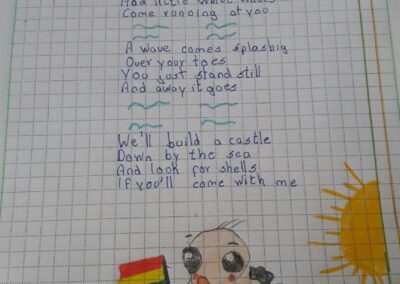 And little wave waves
Come running at you
A wave comes splasbig
Over your toes
You just stand still
And away it goes
We'll build a castle
Down by the sea
And look for shells
If you'll come with me